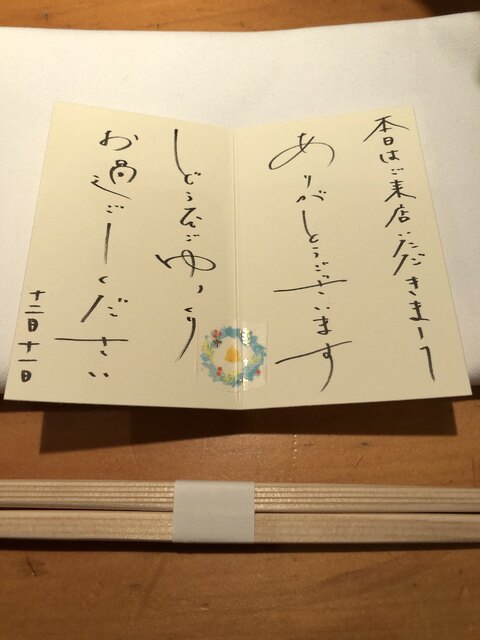 本日はご来店いただきまして
ありがとうございます
どうぞごゆっくり
お過ごしください
十二月十一日